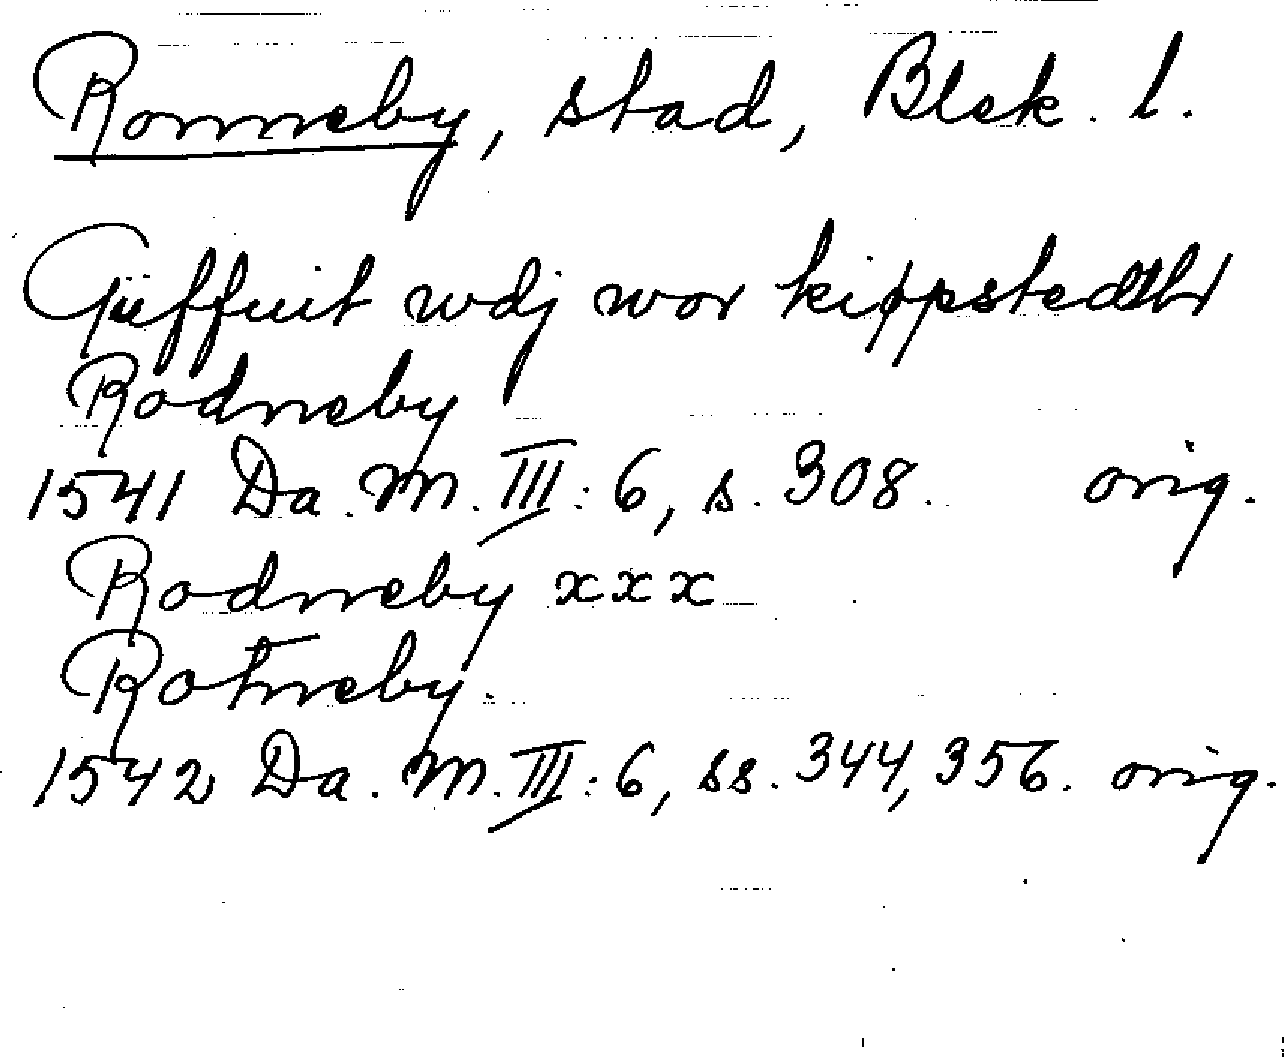 Ronneby, stad, Blek. l.
Güffuit wdj wor kippstedthr
Rodneby
1541 Da. M. III: 6, s. 308. orig.
Rodneby xxx
Rotneby.
1542 Da. M. III: 6, ss. 344, 356. orig.